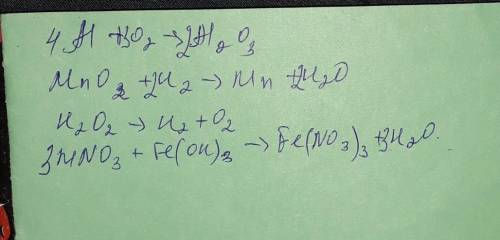 4Al + 3O2 → 2Al2O3
MnO2 + 2H2 → Mn + 2H2O
H2O2 → H2 + O2
3HNO3 + Fe(OH)3 → Fe(NO3)3 + 3H2O.